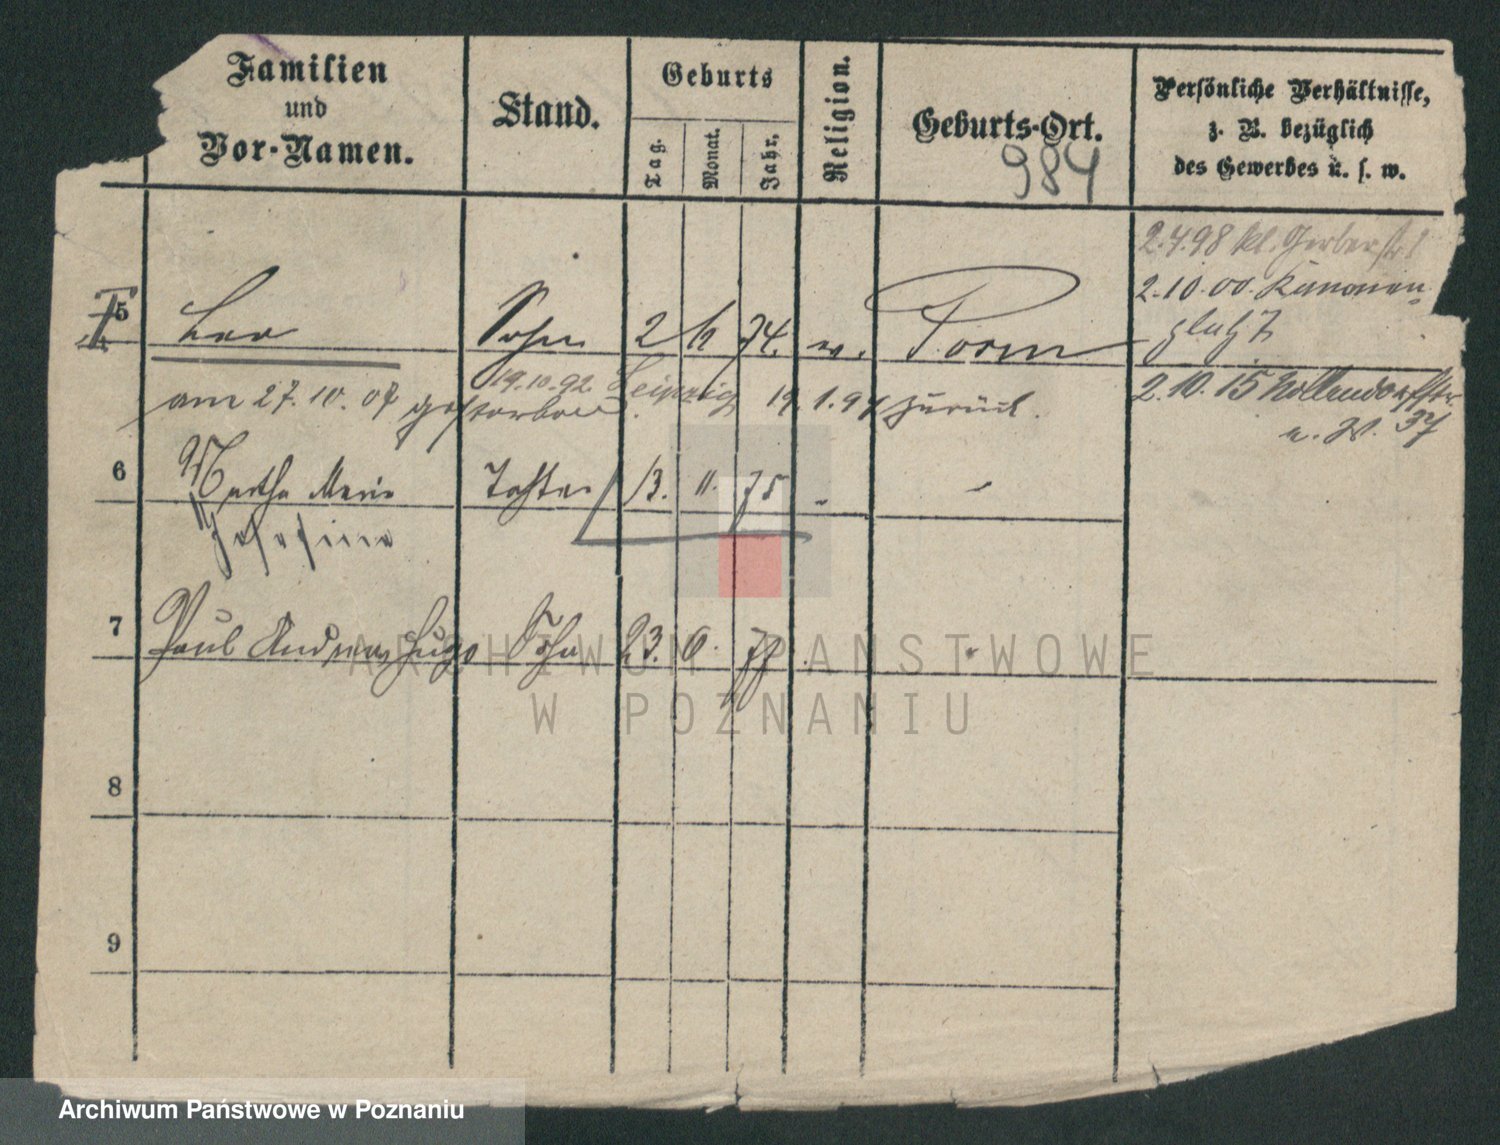 Familien
und
Vor-Namen.
Stand.
Geburts
Tag.
Monat.
Jahr.
Religion.
Geburts-Ort.
984
Persönliche Verhältnisse,
z. B. bezüglich
des Gewerbes u. s. w.
2.4.98 kl. Gerberstr
2.10.00. Kanonen-
platz 7
5 Leo Sohn 2 74. Posen
am 27.10.07 gestorben. 19.10.92 Leipzig 19.1.94 zurück.
2.10.15 Nollendorfstr.
37
6 Martha Marie Tochter 13. 11. 75 -
Josefine
7 Paul Andreas Hugo Sohn 23. 6. 77
8
9
ARCHIWUM PAŃSTWOWE
W POZNANIU
Archiwum Państwowe w Poznaniu